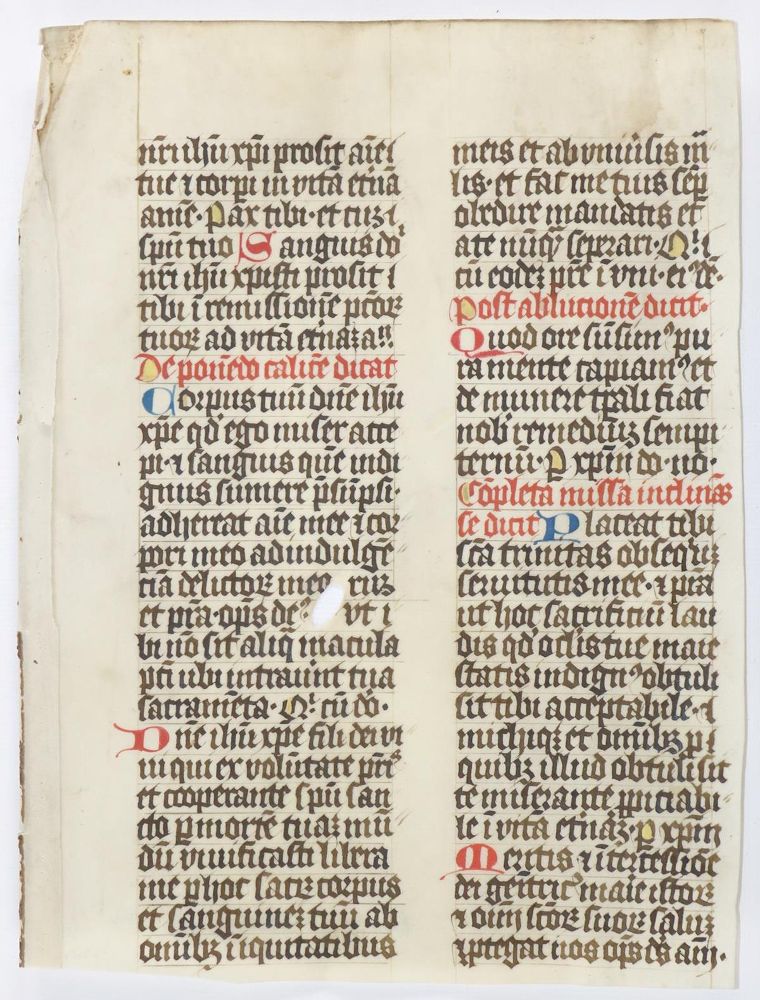 nr̄i ih̄u xp̄i prosit aīe ī
tue ⁊ corpi in vitā et̄nā
amē· Pax tibi· et cuʒ ī
spū tuo Sanguis dō
nr̄i ih̄u xpisti prosit ī
tibi ī remissionē pctōꝝ
tuoꝝ ad vitā et̄naʒ a..
De ponēdo calicē dicat
Corpus tuū dn̄e ih̄u
xp̄e qd̓ ego miser acce
pi· ⁊ sanguis quē indi
gnus sumere p̄sūpsi·
adhereat aīe mee ⁊ coꝛ
pori meo ad indulgē
ciā delictoꝝ meo ruʒ
et pr̄a· op̄s de᷒ vt ī
bi nō sit aliq̄ macula
pcti̅ ubi intraūint tua
sacramēta· Qͥ cū dō·
Dn̄e ih̄u xp̄e fili dei vi
ui qui ex volūtate pr̄is
et cooperante spū san
cto ꝑ morte tuaʒ mū
dū viuificasti libera
me ꝑ hoc sacr̄ corpus
et sanguineʒ tuū ab
om̄ibʒ iniquitatibus
meis et ab vniūsis m̄
lis· et fac me tuis sēp
obedire mandatis et
a te nūqͣ̄ sepꝛari· Qͥ ī
cū eodeʒ pr̄e ī vni· ei᷒ dē·
Post ablucionē dicit·
Quod ore sūsim᷒ pu
ra mente capiam᷒ et
de munere tp̄ali fiat
nob̓ remediuʒ sempi
ternū· P xp̄m dō· nō·
Cōpleta missa inclinās
se dicit Placeat tibi
scā trinitas obsequiʒ
seruitutis mee· ⁊ pr̄a
ut hoc sacrificiū lau
dis qd̓ oclis tue maie
statis indign᷒ obtuli
sit tibi acceptabile· ⁊
michiqʒ et om̄ibʒ p ī
quibʒ illud obtuli sit
te miserante ꝓpiciabi
le ī vitā et̄naʒ· P xp̄m
Meritis ⁊ ītercessiōe
dei geitric᷒ maīe istoꝝ
⁊ oīm sctoꝝ suoꝝ saluʒ
⁊ ꝓtegat nos op̄s dˢ am̄·